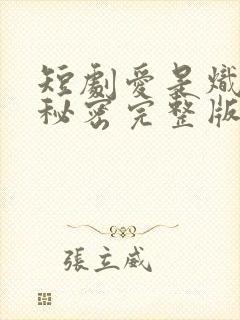 短劇愛是熾
秘密完整版
張立威